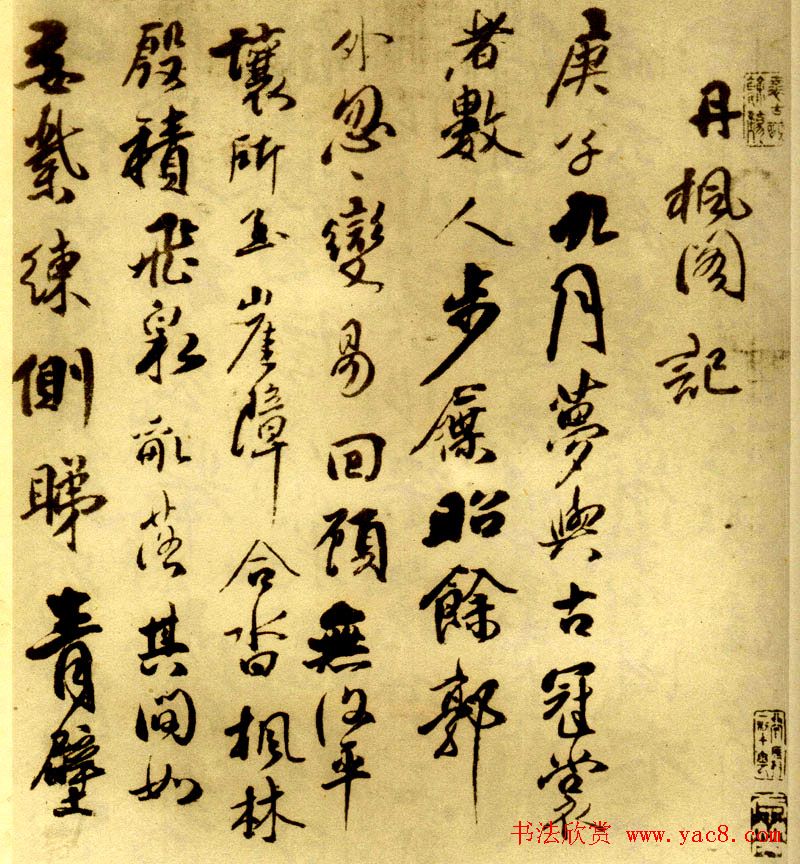 丹楓閣記
庚子九月夢與古冠裳
者數人步屧昭餘郭
外忽〻變易回顧無復平
壤所至崖障合沓楓林
殷積飛泉亂落其間如
練側睇青壁
书法欣赏 www.yac8.com